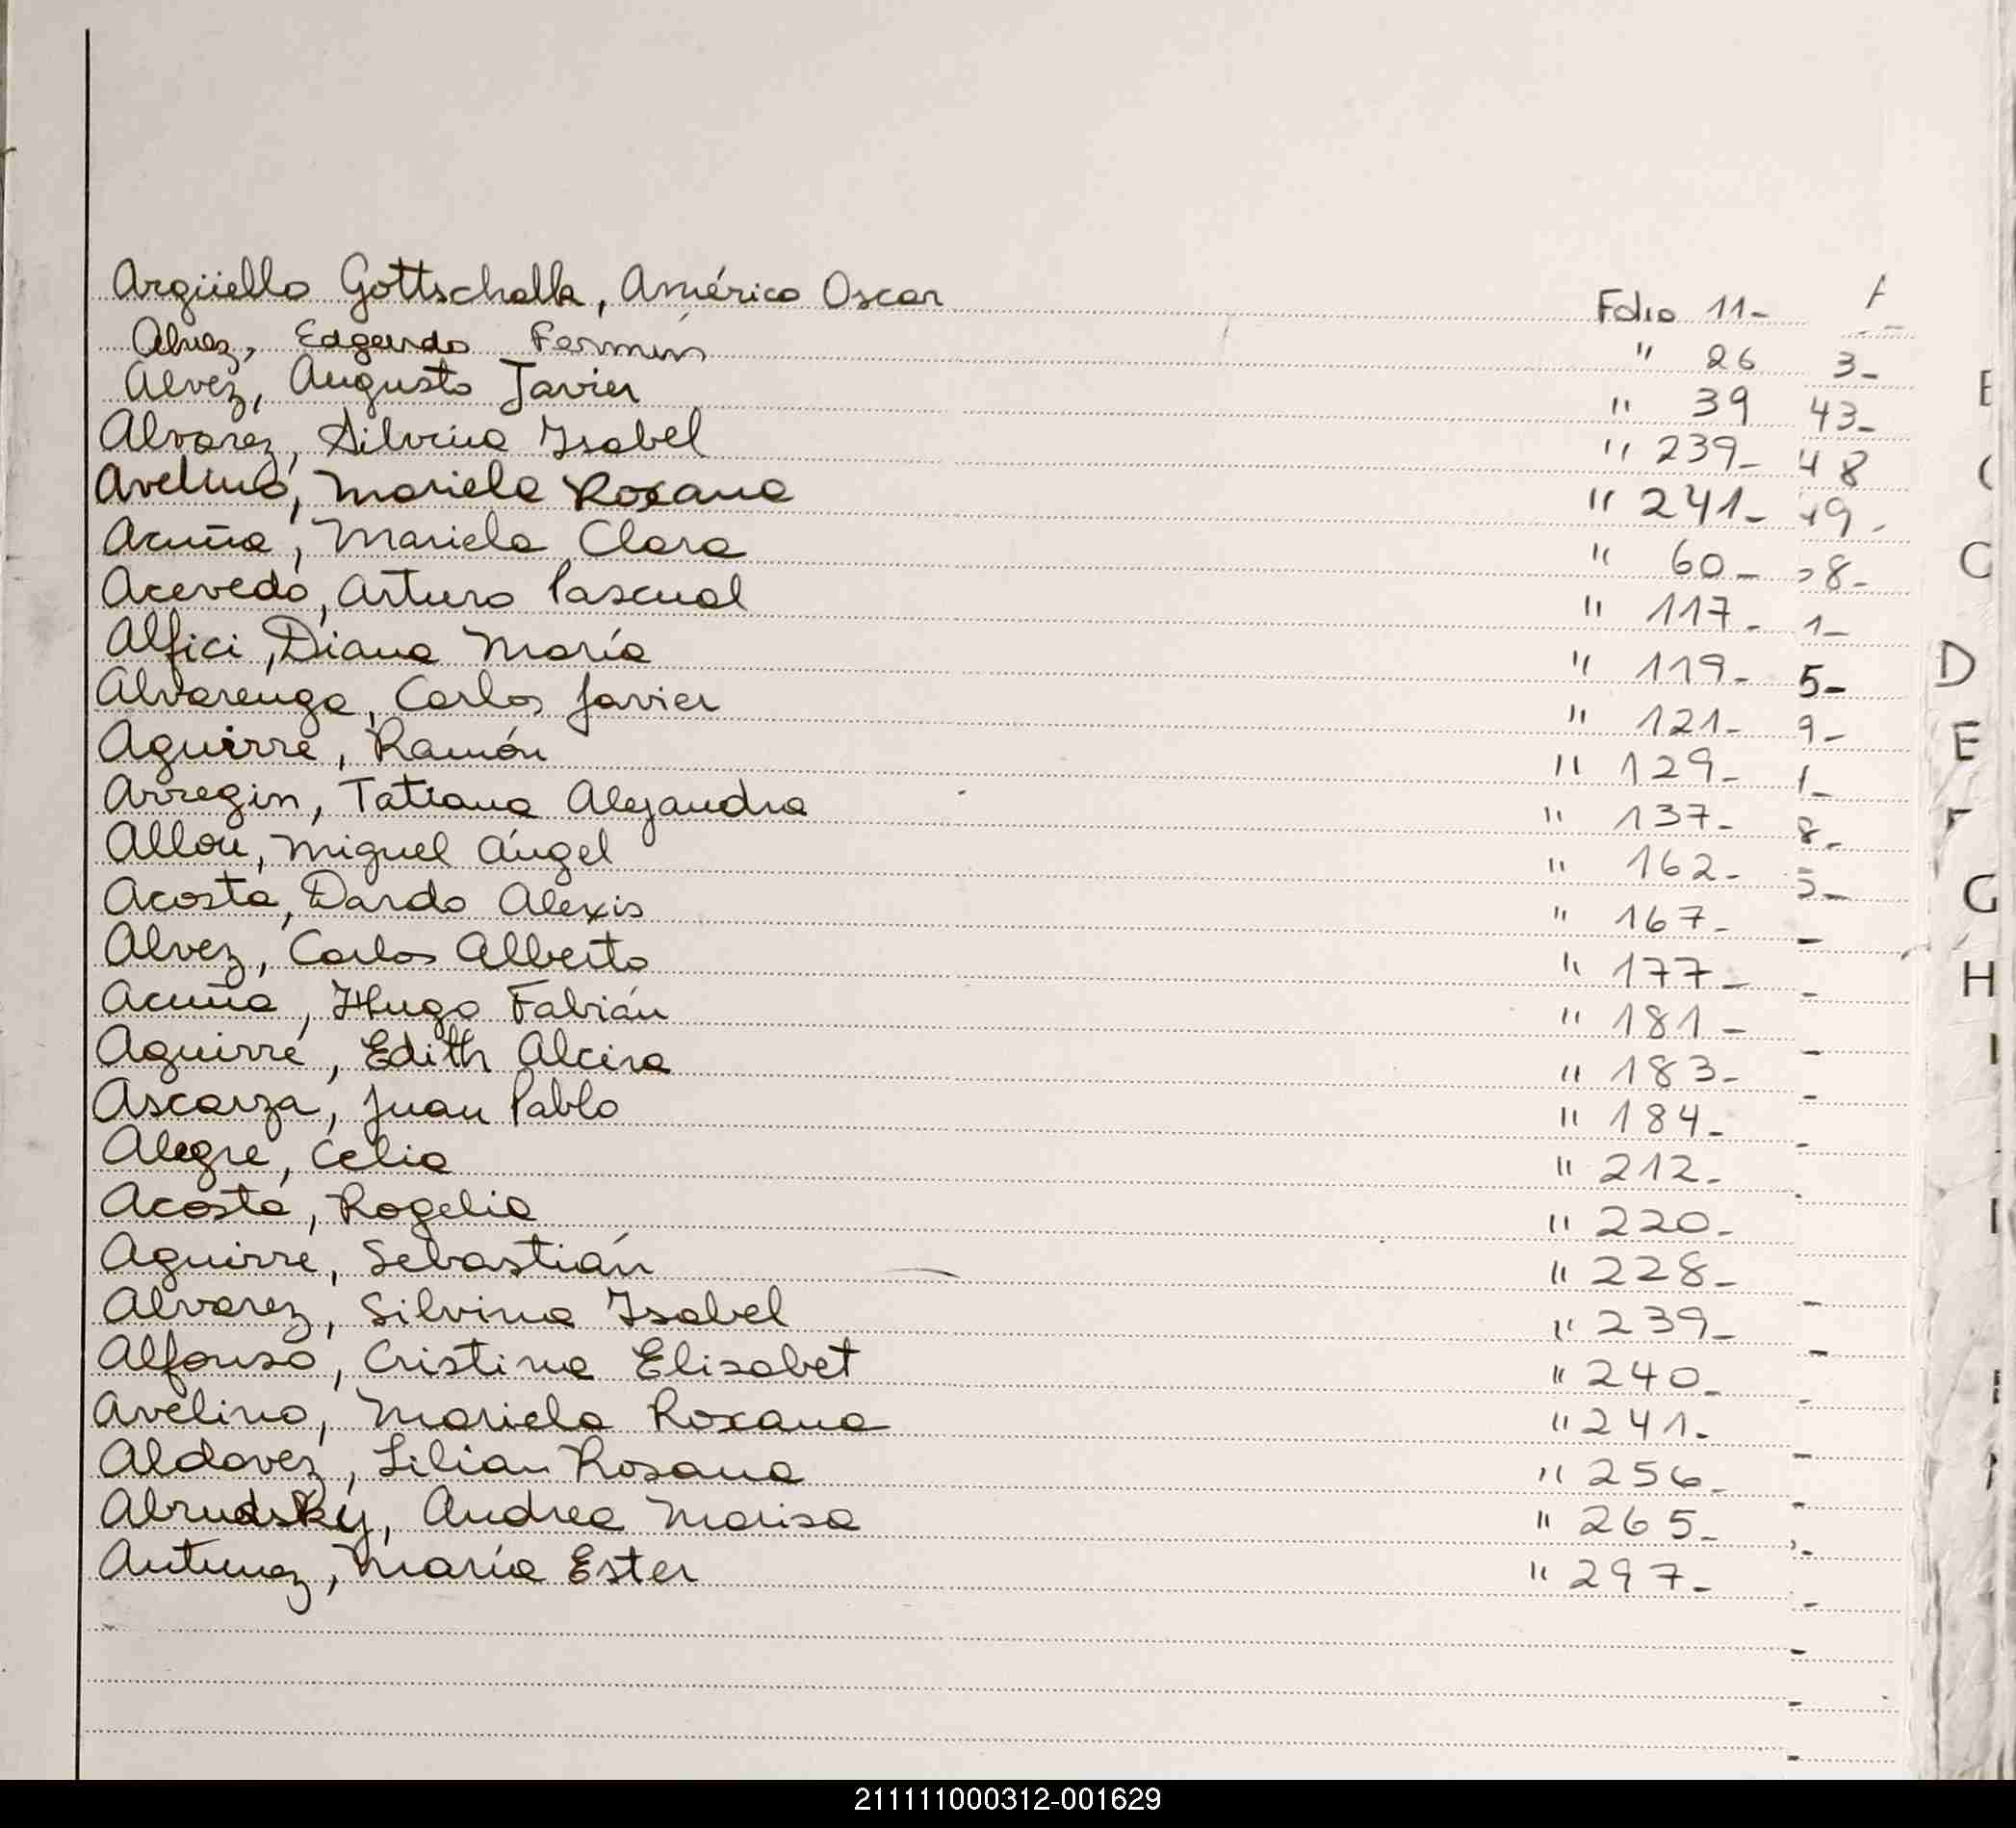 Argüello Gottschalk, Américo Oscar Folio 11-
Alvez, Edgardo Fermín " 26 3-
Alvez, Augusto Javier " 39 43-
Alvarez, Silvina Isabel " 239- 48
Avelino, Mariela Roxana " 241- 49-
Acuña, Mariela Clara " 60- 8-
Acevedo, Arturo Pascual " 117- 1-
Alfici, Diana María " 119- 5-
Alvarenga, Carlos Javier " 121- 9-
Aguirre, Ramón " 129- 1-
Arregin, Tatiana Alejandra " 137- 8-
Allou, Miguel Ángel " 162- 5-
Acosta, Dardo Alexis " 167-
Alvez, Carlos Alberto " 177-
Acuña, Hugo Fabián " 181-
Aguirre, Edith Alcira " 183-
Ascarza, Juan Pablo " 184-
Alegre, Celia " 212-
Acosta, Rogelia " 220-
Aguirre, Sebastián " 228-
Alvarez, Silvina Isabel " 239-
Alfonso, Cristina Elisabet " 240-
Avelino, Mariela Roxana " 241-
Aldavez, Lilian Rosana " 256-
Abrudsky, Andrea Marisa " 265-
Antunez, María Ester " 297-
C
D
E
F
G
H
211111000312-001629